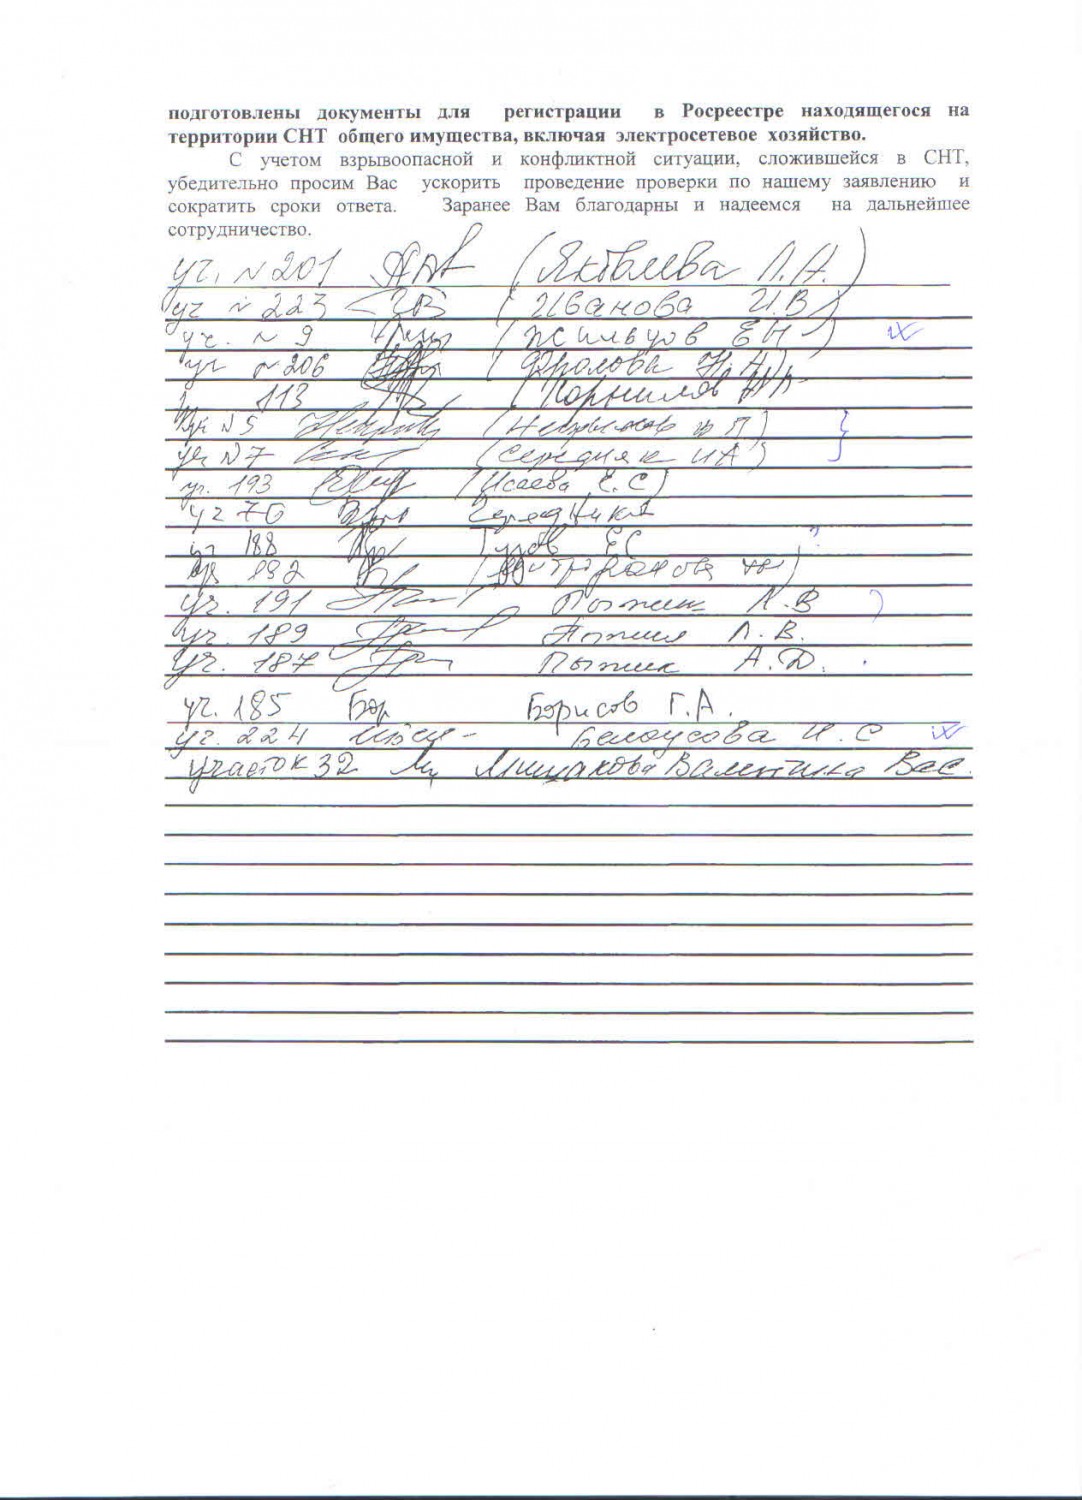 подготовлены документы для регистрации в Росреестре находящегося на
территории СНТ общего имущества, включая электросетевое хозяйство.
С учетом взрывоопасной и конфликтной ситуации, сложившейся в СНТ,
убедительно просим Вас ускорить проведение проверки по нашему заявлению и
сократить сроки ответа. Заранее Вам благодарны и надеемся на дальнейшее
сотрудничество.
уч. №201 (Яковлева Л.А.)
уч №223 (Иванова И.В)
уч. №9 (Жильцов ЕН)
уч №206 (Фролова Н.А)
113 (Корнилов
уч №5
уч №7 (Середняк ИА)
уч. 193 (Исаева Е.С)
уч 76
уч 188 ЕС
уч 192 (Митрофанова
уч. 191 Пыжик Л.В
уч. 189 Пыжик Л.В.
уч. 187 Пыжик А.Д.
уч. 185 Бор Борисов Г.А.
уч. 224 Белоусова И.С
участок 32 Валентина Вас.